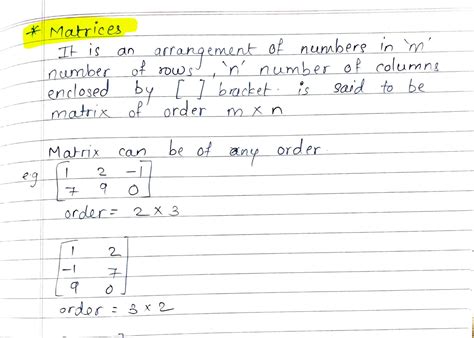 * Matrices
It is an arrangement of numbers in 'm'
number of rows, 'n' number of columns
enclosed by [ ] bracket is said to be
matrix of order m × n
Matrix can be of any order.
eg [1 2 -1
7 9 0]
order = 2 × 3
[1 2
-1 7
9 0]
order = 3 × 2